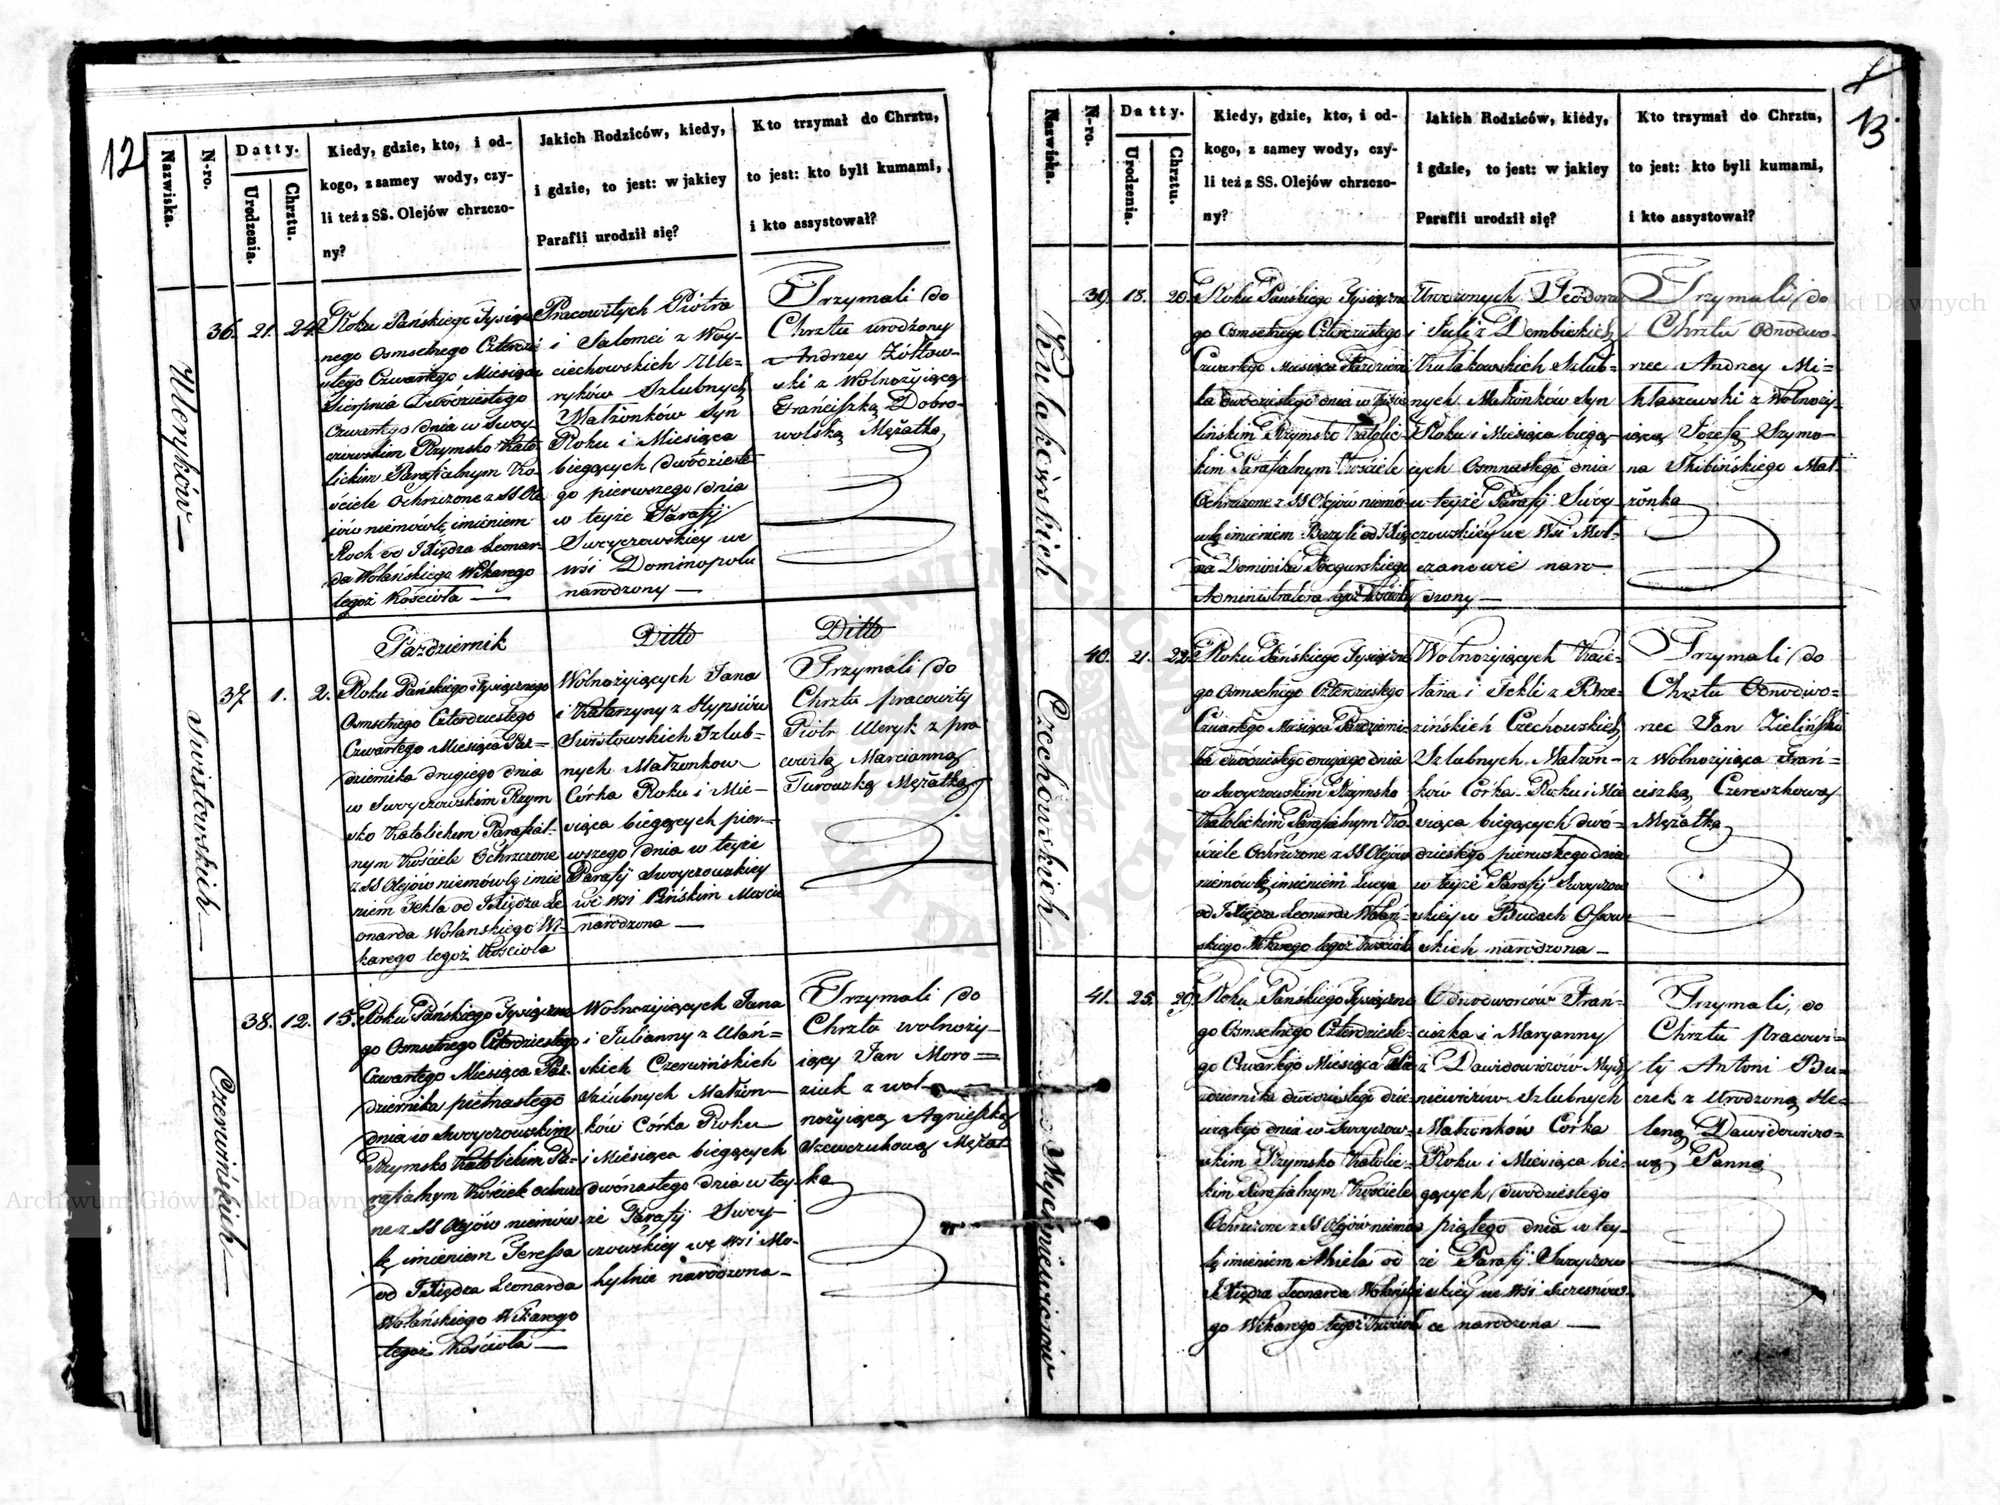 12
Nazwiska.
N-ro.
Datty.
Urodzenia.
Chrztu.
Kiedy, gdzie, kto, i od-
kogo, z samey wody, czy-
li też z SS. Olejów chrzczo-
ny?
Jakich Rodziców, kiedy,
i gdzie, to jest: w jakiey
Parafii urodził się?
Kto trzymał do Chrztu,
to jest: kto byli kumami,
i kto assystował?
Uleryków
36. 21. 24.
Roku Pańskiego Tysiącz
nego Osmsetnego Czterdzie
stego Czwartego Miesiąca
Sierpnia Dwódziestego
Czwartego dnia w Swoy-
czowskim Rzymsko Kato-
lickim Parafialnym Ko-
ściele Ochrzczone z SS Ole
jów niemówlę imieniem
Roch od Xiędza Leonar-
da Wolańskiego Wikarego
tegoż Kościoła
Pracowitych Piotra
i Salomei z Woy-
ciechowskich Ule-
ryków Szlubnych
Małżonków Syn
Roku i Miesiąca
biegących dwódzieste
go pierwszego dnia
w teyże Parafij
Swoyczowskiey we
wsi Dominopolu
narodzony
Trzymali do
Chrztu urodzony
Andrzey Żółtow-
ski z Wolnożyiącą
Franciszką Dobro-
wolską Mężatką
Swistowskich
Październik
Ditto
Ditto
37. 1. 2.
Roku Pańskiego Tysiącznego
Osmsetnego Czterdziestego
Czwartego Miesiąca Paź-
dziernika drugiego dnia
w Swoyczowskim Rzym
sko Katolickim Parafial-
nym Kościele Ochrzczone
z SS Olejów niemówlę imie
niem Tekla od Xiędza Le
onarda Wolanskiego Wi-
karego tegoż Kościoła
Wolnożyiących Jana
i Katarzyny z Hypsiów
Swistowskich Szlub-
nych Małżonkow
Córka Roku i Mie-
siąca biegących pier-
wszego dnia w teyże
Parafij Swoyczowskiey
we wsi Pińskim Moście
narodzona
Trzymali do
Chrztu pracowity
Piotr Uleryk z pra
cowitą Marcianną
Turouzką Mężatką
Czerwińskich
38. 12. 15.
Roku Pańskiego Tysiączne
go Osmsetnego Czterdziestego
Czwartego Miesiąca Paź-
dziernika piętnastego
dnia w Swoyczowskim
Rzymsko Katolickim Pa-
rafialnym Kościele Ochrzczo
ne z SS Olejów niemów-
lę imieniem Teressa
od Xiędza Leonarda
Wolańskiego Wikarego
tegoż Kościoła
Wolnożyiących Jana
i Julianny z Ulań-
skich Czerwińskich
Szlubnych Małżon-
ków Córka Roku
i Miesiąca biegących
dwónastego dnia w tey-
że Parafij Swoy-
czowskiey we wsi Mo-
hylnie narodzona
Trzymali do
Chrztu wolnoży-
iący Jan Moro-
ziuk z wol-
nożyiącą Agnieszką
Szewczukową Mężat
ką
13
Nazwiska.
N-ro.
Datty.
Urodzenia.
Chrztu.
Kiedy, gdzie, kto, i od-
kogo, z samey wody, czy-
li też z SS. Olejów chrzczo-
ny?
Jakich Rodziców, kiedy,
i gdzie, to jest: w jakiey
Parafii urodził się?
Kto trzymał do Chrztu,
to jest: kto byli kumami,
i kto assystował?
Kułakowskich
39. 18. 20.
Roku Pańskiego Tysiączne
go Osmsetnego Czterdziestego
Czwartego Miesiąca Październi
ka dwódziestego dnia w Swoy
Rzymsko Katolic-
kim Parafialnym Kościele
Ochrzczone z SS Olejów niemó-
wlę imieniem Bazyli od Xię
dza Dominika
Administratora tegoż Kościoła
Urodzonych Teodora
i Julij z Dembickich
Kułakowskich Szlub-
nych Małżonków Syn
Roku i Miesiąca biegą-
cych Osmnastego dnia
w teyże Parafij Swoy
czowskiey we Wsi Moł-
czanowie naro
dzony
Trzymali do
Chrztu Odnodwo-
rzec Andrzey Mi-
kłaszewski z Wolnoży-
iącą Józefą Szymo
na Skibińskiego Mał-
żonką
Czechowskich
40. 21. 22.
Roku Pańskiego Tysiączne
go Osmsetnego Czterdziestego
Czwartego Miesiąca Październi-
ka dwódziestego drugiego dnia
w Swoyczowskim Rzymsko
Katolickim Parafialnym Ko-
ściele Ochrzczone z SS Olejów
niemówlę imieniem Lucya
od Xiędza Leonarda Wolań-
skiego Wikarego tegoż Kościoła
Wolnożyiących Kaie-
tana i Tekli z Brze-
zińskich Czechowskich
Szlubnych Małżon-
ków Córka Roku i Mie
siąca biegących dwó-
dziestego pierwszego dnia
w teyże Parafij Swoyczow
skiey w Budach Ossow
skich narodzona
Trzymali do
Chrztu Odnodwo-
rzec Jan Zieliński
z Wolnożyiącą Fran-
ciszką Czereszkową
Mężatką
Mychniewiczów
41. 25. 29.
Roku Pańskiego Tysiączne
go Osmsetnego Czterdzieste-
go Czwartego Miesiąca Paź
dziernika dwódziestego dzie
wiątego dnia w Swoyczow-
skim Rzymsko Katolic-
kim Parafialnym Kościele
Ochrzczone z SS Olejów niemów
lę imieniem Aniela od
Xiędza Leonarda Wolańskie
go Wikarego tegoż Kościoła
Odnodworców Fran-
ciszka i Maryanny
z Dawidowiczów Mych
niewiczów Szlubnych
Małżonków Córka
Roku i Miesiąca bie-
gących dwódziestego
piątego dnia w tey-
że Parafij Swoyczow
skiey we Wsi
narodzona
Trzymali do
Chrztu pracowi-
ty Antoni Bu-
czek z Urodzoną He-
leną Dawidowiczo-
wą Panną
Archiwum Główne Akt Dawnych
Archiwum Główne Akt Dawnych